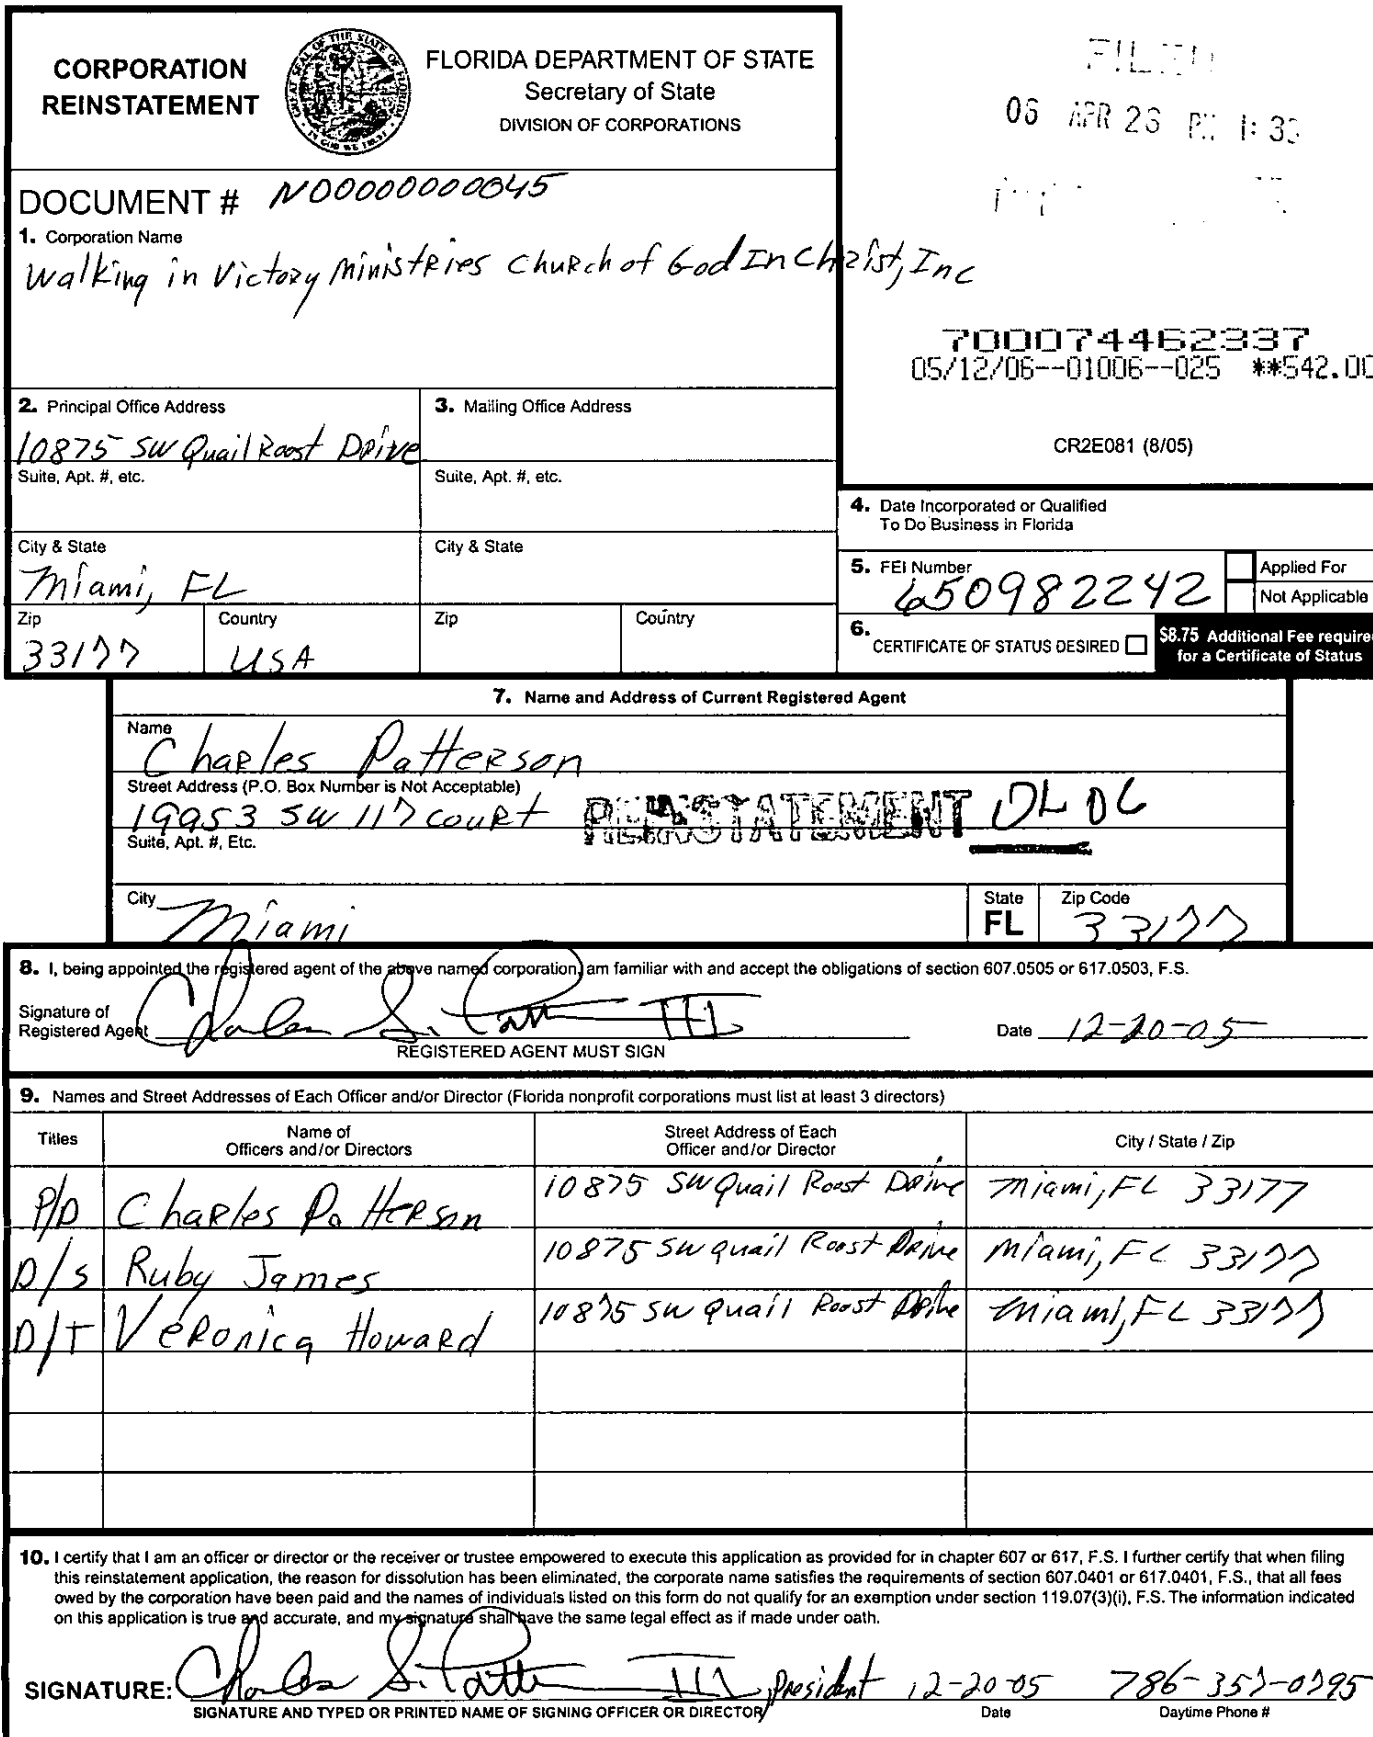 CORPORATION
REINSTATEMENT
GREAT SEAL OF THE STATE OF FLORIDA
IN GOD WE TRUST
FLORIDA DEPARTMENT OF STATE
Secretary of State
DIVISION OF CORPORATIONS
FILED
06 APR 26 PM 1:33
DOCUMENT # N00000000045
1. Corporation Name
Walking in Victory Ministries Church of God In Christ, Inc
700074462337
05/12/06--01006--025 **542.00
2. Principal Office Address
3. Mailing Office Address
10875 SW Quail Roost Drive
CR2E081 (8/05)
Suite, Apt. #, etc.
Suite, Apt. #, etc.
4. Date Incorporated or Qualified
To Do Business in Florida
City & State
City & State
Miami, FL
5. FEI Number
650982242
Applied For
Not Applicable
Zip
Country
Zip
Country
33177
USA
6. CERTIFICATE OF STATUS DESIRED
$8.75 Additional Fee require
for a Certificate of Status
7. Name and Address of Current Registered Agent
Name
Charles Patterson
Street Address (P.O. Box Number is Not Acceptable)
19953 SW 117 Court
REINSTATEMENT
Suite, Apt. #, Etc.
City
Miami
State
FL
Zip Code
33177
8. I, being appointed the registered agent of the above named corporation, am familiar with and accept the obligations of section 607.0505 or 617.0503, F.S.
Signature of
Registered Agent Charles S. Patt III
Date 12-20-05
REGISTERED AGENT MUST SIGN
9. Names and Street Addresses of Each Officer and/or Director (Florida nonprofit corporations must list at least 3 directors)
Titles
Name of
Officers and/or Directors
Street Address of Each
Officer and/or Director
City / State / Zip
P/D Charles Patterson 10875 SW Quail Roost Drive Miami, FL 33177
D/S Ruby James 10875 SW Quail Roost Drive Miami, FL 33177
D/T Veronica Howard 10875 SW Quail Roost Drive Miami, FL 33177
10. I certify that I am an officer or director or the receiver or trustee empowered to execute this application as provided for in chapter 607 or 617, F.S. I further certify that when filing
this reinstatement application, the reason for dissolution has been eliminated, the corporate name satisfies the requirements of section 607.0401 or 617.0401, F.S., that all fees
owed by the corporation have been paid and the names of individuals listed on this form do not qualify for an exemption under section 119.07(3)(i), F.S. The information indicated
on this application is true and accurate, and my signature shall have the same legal effect as if made under oath.
SIGNATURE: Charles S. Patt III President 12-20-05 786-357-0795
SIGNATURE AND TYPED OR PRINTED NAME OF SIGNING OFFICER OR DIRECTOR
Date
Daytime Phone #